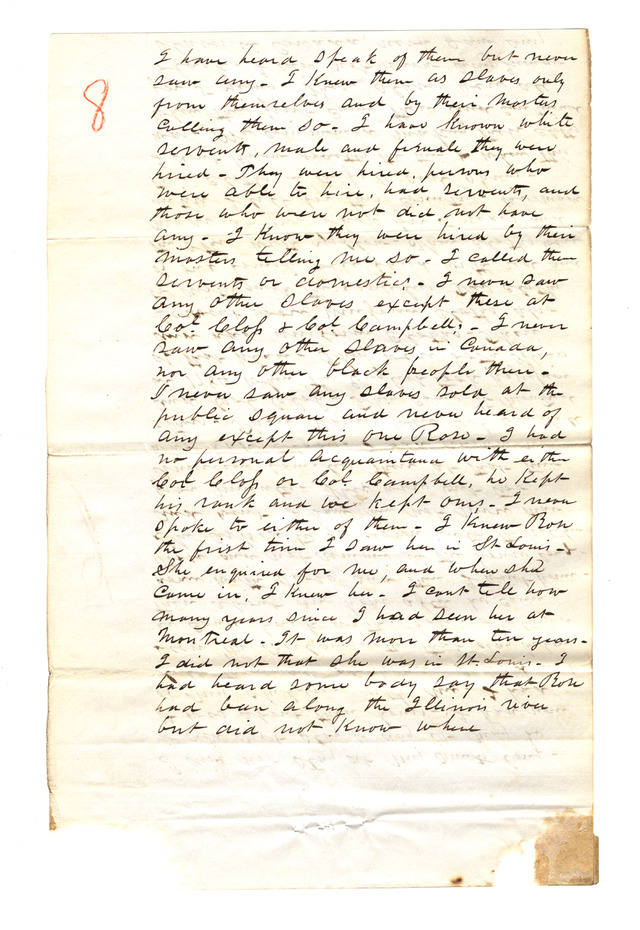 8
I have heard speak of them but never
saw any - I knew them as slaves only
from themselves and by their Masters
Calling them so - I have known white
servents, male and female, they were
hired - They were hired, persons who
were able to hire, had servents, and
those who were not did not have
any - I know they were hired by their
Masters telling me so - I called them
servents or domestics - I never saw
any other slaves except these at
Col. Closs & Col. Campbells - I never
saw any other slaves in Canada,
nor any other black people there -
I never saw any slaves sold at the
public square and never heard of
any except this one Rose - I had
no personal acquaintance with either
Col Closs or Col. Campbell, he kept
his rank and we kept ours - I never
spoke to either of them - I knew Rose
the first time I saw her in St Louis -
She enquired for me, and when she
came in, I knew her - I cant tele how
many years since I had seen her at
Montreal - It was more than ten years -
I did not that she was in St. Louis - I
had heard some body say that Rose
had ban along the Illinois river
but did not know where